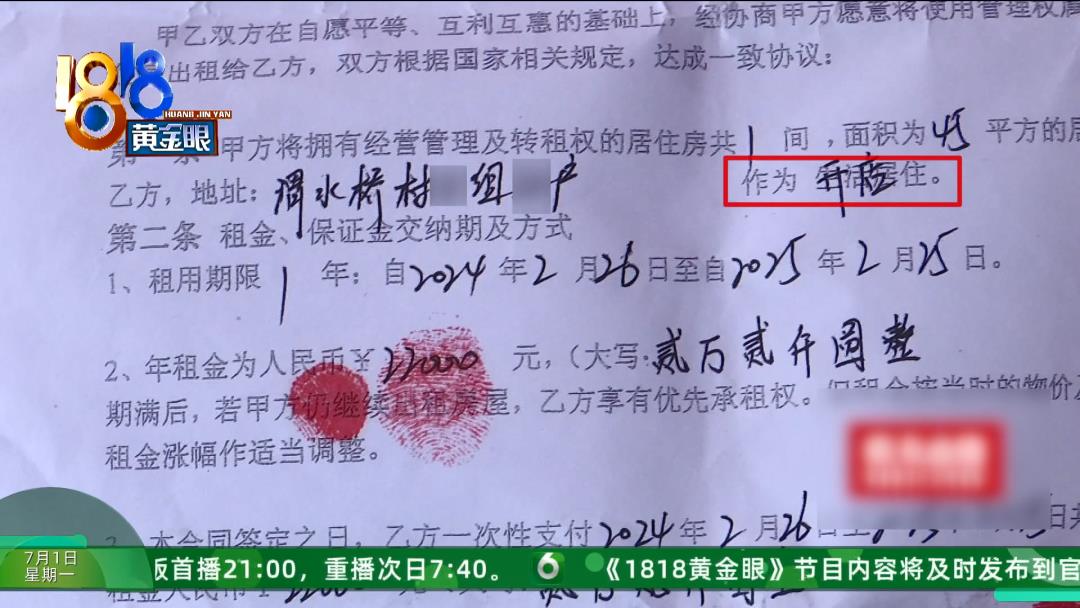 甲乙双方在自愿平等、互利互惠的基础上，经协商甲方愿意将使用管理权属
出租给乙方，双方根据国家相关规定，达成一致协议：
1818
HUANG JIN YAN
黄金眼
第一条 甲方将拥有经营管理及转租权的居住房共1间，面积为45平方的居
乙方，地址：渭水桥村 组 户 作为开店居住。
第二条 租金、保证金交纳期及方式
1、租用期限1年：自2024年2月26日至自2025年2月25日。
2、年租金为人民币￥22000元，（大写：贰万贰仟圆整
期满后，若甲方仍继续出租房屋，乙方享有优先承租权。但租金按当时的物价及
租金涨幅作适当调整。
本合同签定之日，乙方一次性支付2024年2月26日至
7月1日
星期一
版首播21:00，重播次日7:40。 6 《1818黄金眼》节目内容将及时发布到官
租金人民币